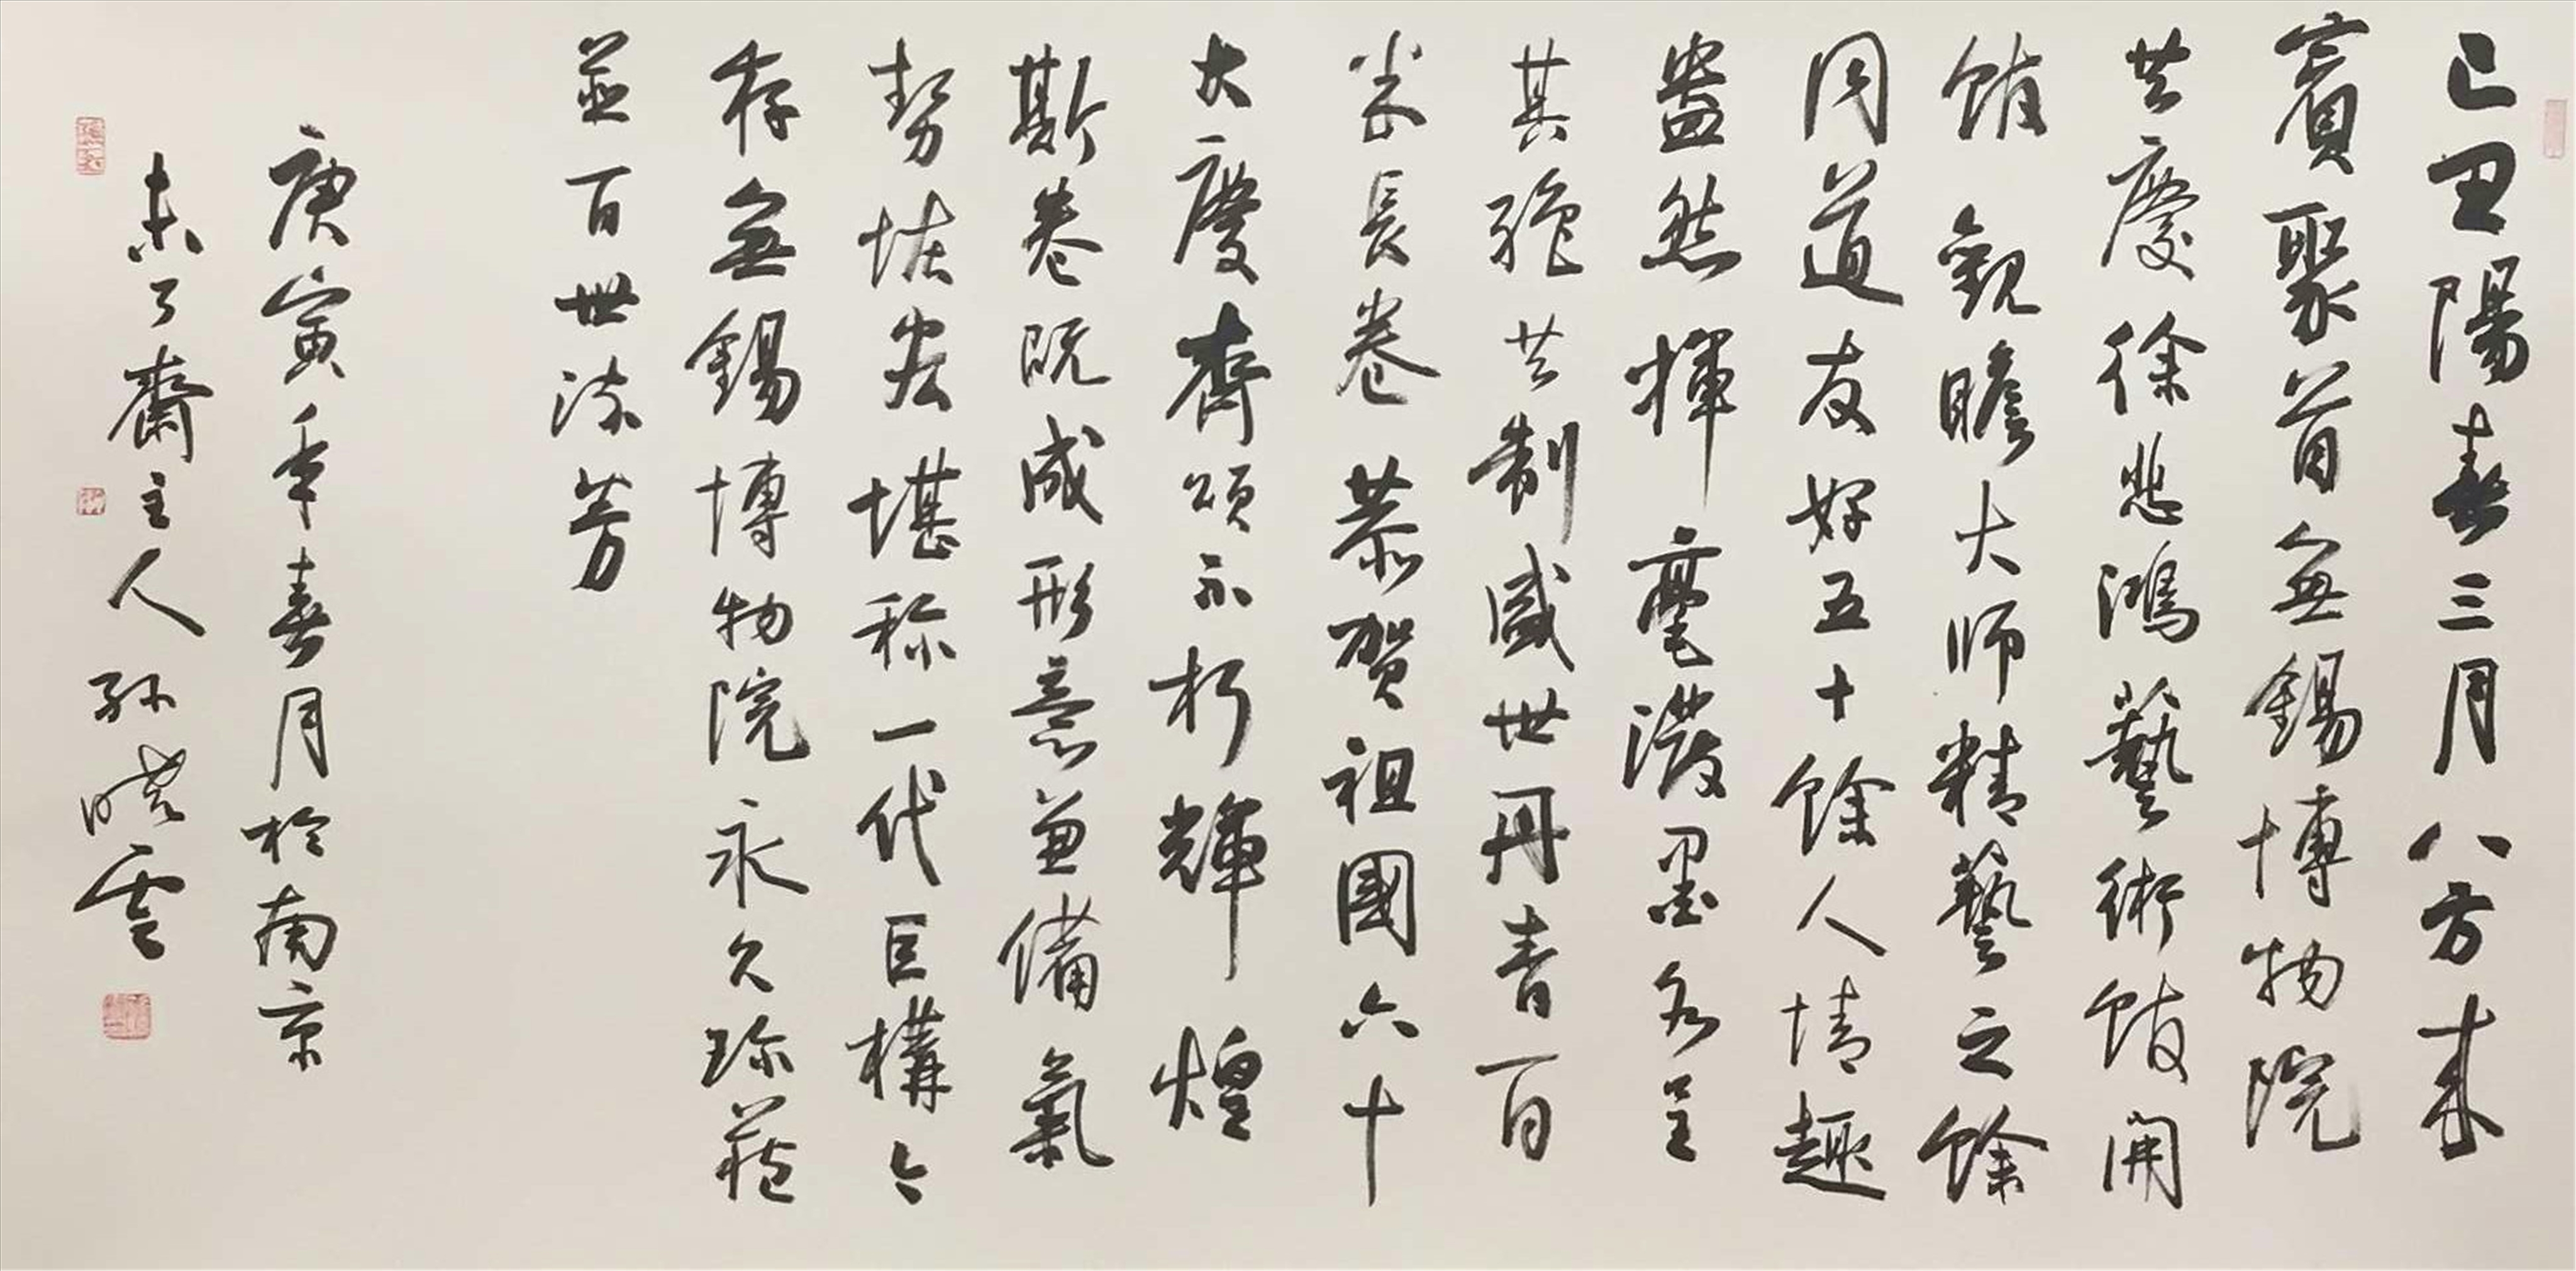 己丑陽春三月八方来
賓聚首無錫博物院
共慶徐悲鴻藝術館開
館觀瞻大師精藝之餘
同道友好五十餘人情趣
盎然揮毫潑墨各呈
其強共制盛世丹青百
米長卷恭賀祖國六十
大慶齊頌不朽輝煌
斯卷既成形意兼備氣
勢恢宏堪称一代巨構今
存無錫博物院永久珍藏
並百世流芳
庚寅年春月於南京
未了齋主人孫曉雲